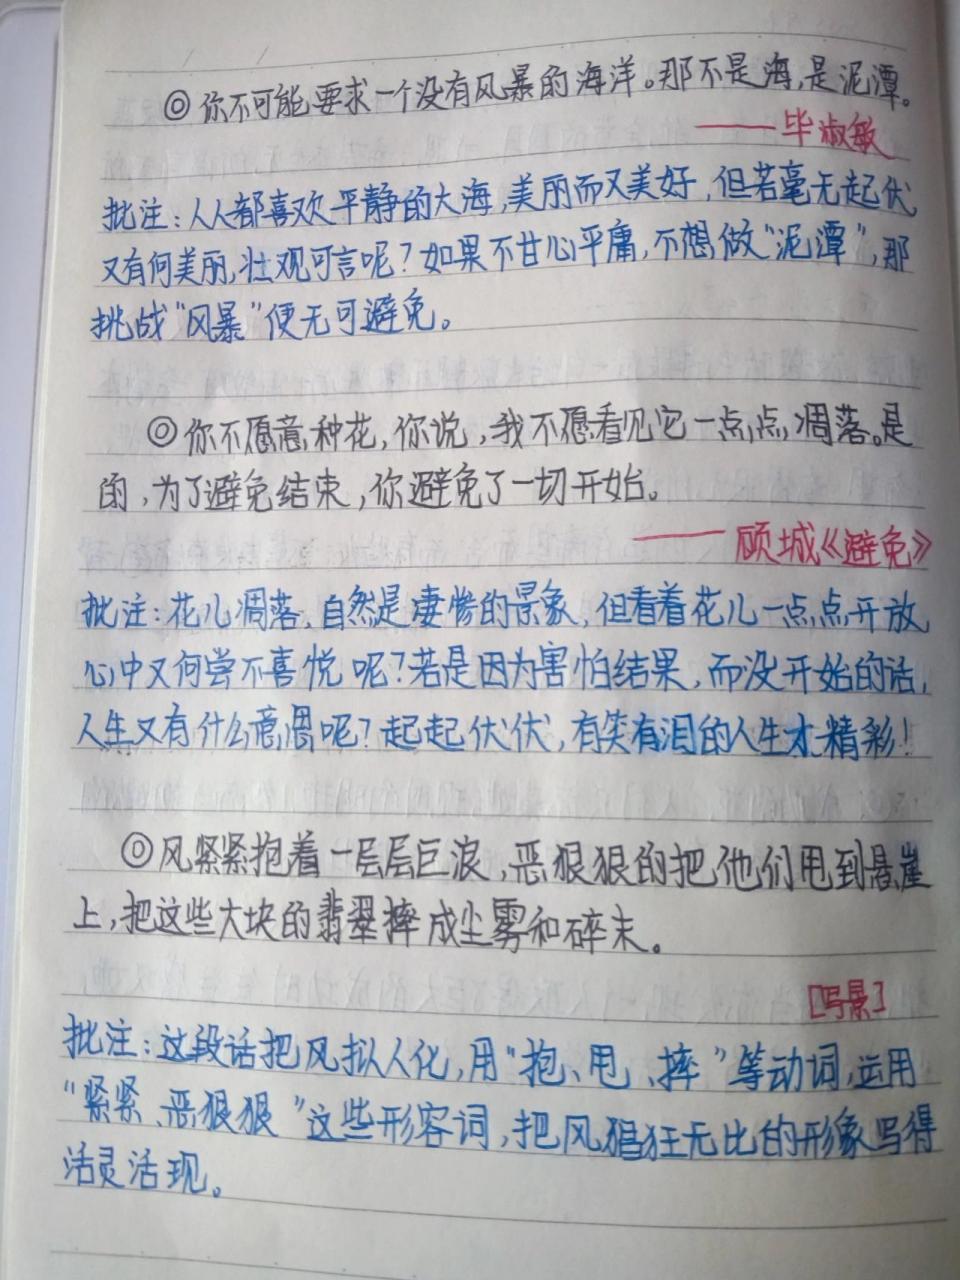 ◎你不可能要求一个没有风暴的海洋。那不是海,是泥潭。
——毕淑敏
批注:人人都喜欢平静的大海,美丽而又美好,但若毫无起伏
又有何美丽,壮观可言呢?如果不甘心平庸,不想做“泥潭”,那
挑战“风暴”便无可避免。
◎你不愿意种花,你说,我不愿看见它一点点凋落。是
的,为了避免结束,你避免了一切开始。
——顾城《避免》
批注:花儿凋落,自然是凄惨的景象,但看着花儿一点点开放
心中又何尝不喜悦呢?若是因为害怕结果,而没开始的话,
人生又有什么意思呢?起起伏伏,有笑有泪的人生才精彩!
◎风紧紧抱着一层层巨浪,恶狠狠的把他们甩到悬崖
上,把这些大块的翡翠摔成尘雾和碎末。
[写景]
批注:这段话把风拟人化,用“抱、甩、摔”等动词,运用
“紧紧、恶狠狠”这些形容词,把风猖狂无比的形象写得
活灵活现。